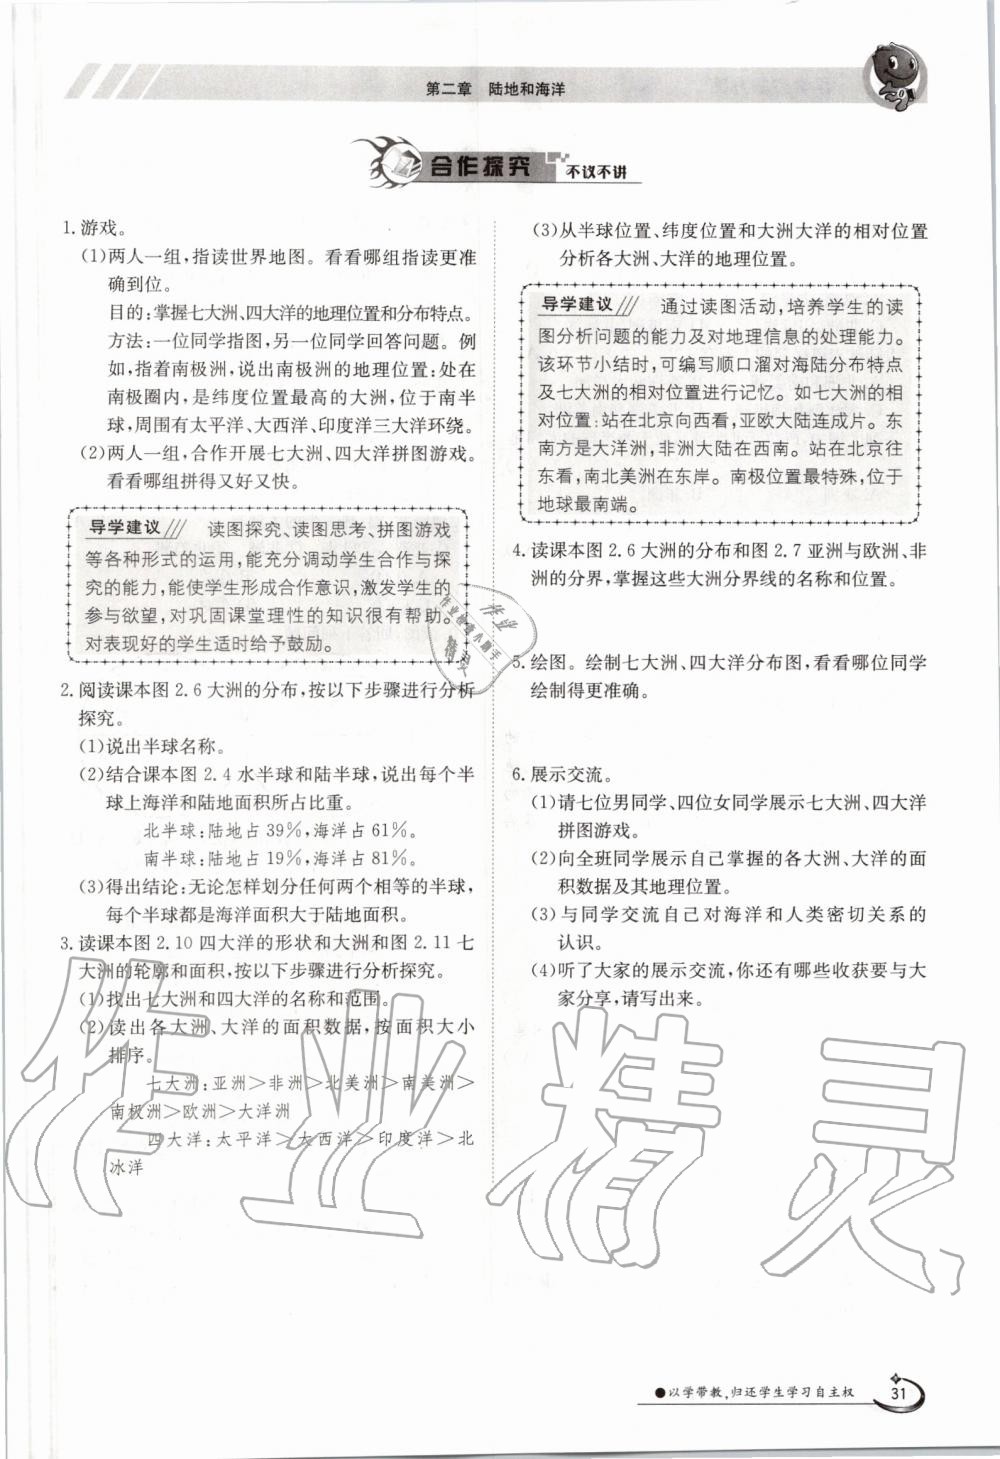 第二章　陆地和海洋
合作探究　不议不讲
1.游戏。
(1)两人一组,指读世界地图。看看哪组指读更准
确到位。
目的:掌握七大洲、四大洋的地理位置和分布特点。
方法:一位同学指图,另一位同学回答问题。例
如,指着南极洲,说出南极洲的地理位置:处在
南极圈内,是纬度位置最高的大洲,位于南半
球,周围有太平洋、大西洋、印度洋三大洋环绕。
(2)两人一组,合作开展七大洲、四大洋拼图游戏。
看看哪组拼得又好又快。
导学建议　读图探究、读图思考、拼图游戏
等各种形式的运用,能充分调动学生合作与探
究的能力,能使学生形成合作意识,激发学生的
参与欲望,对巩固课堂理性的知识很有帮助。
对表现好的学生适时给予鼓励。
2.阅读课本图2.6大洲的分布,按以下步骤进行分析
探究。
(1)说出半球名称。
(2)结合课本图2.4水半球和陆半球,说出每个半
球上海洋和陆地面积所占比重。
北半球:陆地占39%,海洋占61%。
南半球:陆地占19%,海洋占81%。
(3)得出结论:无论怎样划分任何两个相等的半球,
每个半球都是海洋面积大于陆地面积。
3.读课本图2.10四大洋的形状和大洲和图2.11七
大洲的轮廓和面积,按以下步骤进行分析探究。
(1)找出七大洲和四大洋的名称和范围。
(2)读出各大洲、大洋的面积数据,按面积大小
排序。
七大洲:亚洲>非洲>北美洲>南美洲>
南极洲>欧洲>大洋洲
四大洋:太平洋>大西洋>印度洋>北
冰洋
(3)从半球位置、纬度位置和大洲大洋的相对位置
分析各大洲、大洋的地理位置。
导学建议　通过读图活动,培养学生的读
图分析问题的能力及对地理信息的处理能力。
该环节小结时,可编写顺口溜对海陆分布特点
及七大洲的相对位置进行记忆。如七大洲的相
对位置:站在北京向西看,亚欧大陆连成片。东
南方是大洋洲,非洲大陆在西南。站在北京往
东看,南北美洲在东岸。南极位置最特殊,位于
地球最南端。
4.读课本图2.6大洲的分布和图2.7亚洲与欧洲、非
洲的分界,掌握这些大洲分界线的名称和位置。
5.绘图。绘制七大洲、四大洋分布图,看看哪位同学
绘制得更准确。
6.展示交流。
(1)请七位男同学、四位女同学展示七大洲、四大洋
拼图游戏。
(2)向全班同学展示自己掌握的各大洲、大洋的面
积数据及其地理位置。
(3)与同学交流自己对海洋和人类密切关系的
认识。
(4)听了大家的展示交流,你还有哪些收获要与大
家分享,请写出来。
作业精灵
●以学带教,归还学生学习自主权
31